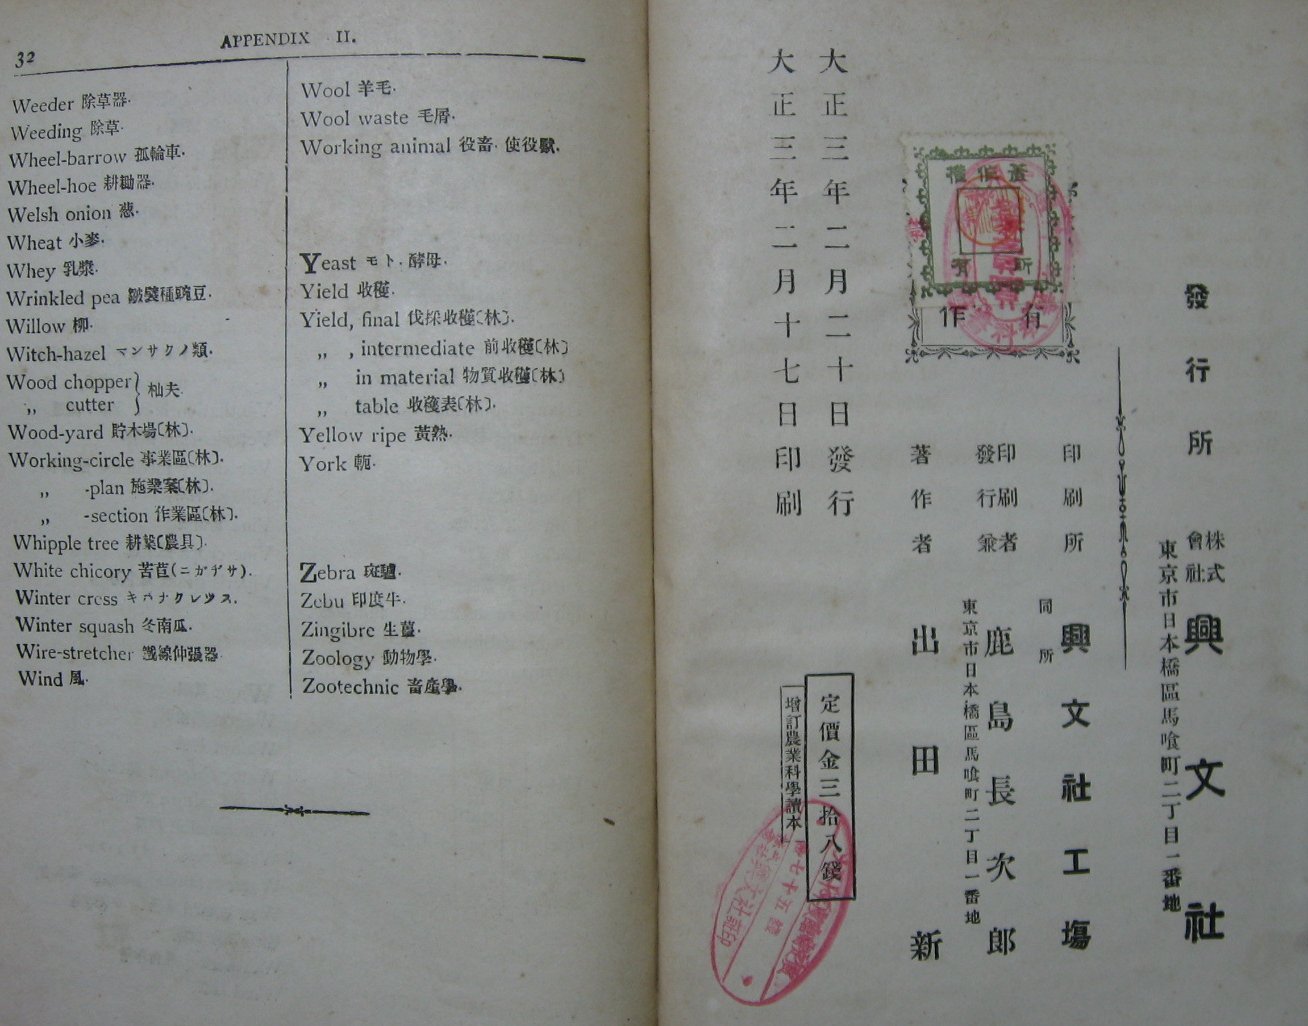 32
APPENDIX II.
Weeder 除草器.
Weeding 除草.
Wheel-barrow 孤輪車.
Wheel-hoe 耕鋤器.
Welsh onion 葱.
Wheat 小麥.
Whey 乳漿.
Wrinkled pea 皺襞種豌豆.
Willow 柳.
Witch-hazel マンサクノ類.
Wood chopper} 杣夫.
„ cutter
Wood-yard 貯木場〔林〕.
Working-circle 事業區〔林〕.
„ -plan 施業案〔林〕.
„ -section 作業區〔林〕.
Whipple tree 〔農具〕.
White chicory 苦苣(ニガヂサ).
Winter cress
Winter squash 冬南瓜.
Wire-stretcher 鐵線伸張器.
Wind 風.
Wool 羊毛.
Wool waste 毛屑.
Working animal 役畜. 使役獸.
Yeast モト. 酵母.
Yield 收穫.
Yield, final 伐採收穫〔林〕.
„ , intermediate 前收穫〔林〕
„ in material 物質收穫〔林〕
„ table 收穫表〔林〕.
Yellow ripe 黃熟.
York 軛.
Zebra 斑驢.
Zebu 印度牛.
Zingibre 生薑.
Zoology 動物學.
Zootechnic 畜產學.
發行所
株式會社 興文社
東京市日本橋區馬喰町二丁目一番地
印刷所
同所
興文社工場
印刷者
發行兼
鹿島長次郎
東京市日本橋區馬喰町二丁目一番地
著作者
出田新
所有
有作
大正三年二月二十日發行
大正三年二月十七日印刷
定價金三拾八錢
增訂農業科學讀本
金七十五錢